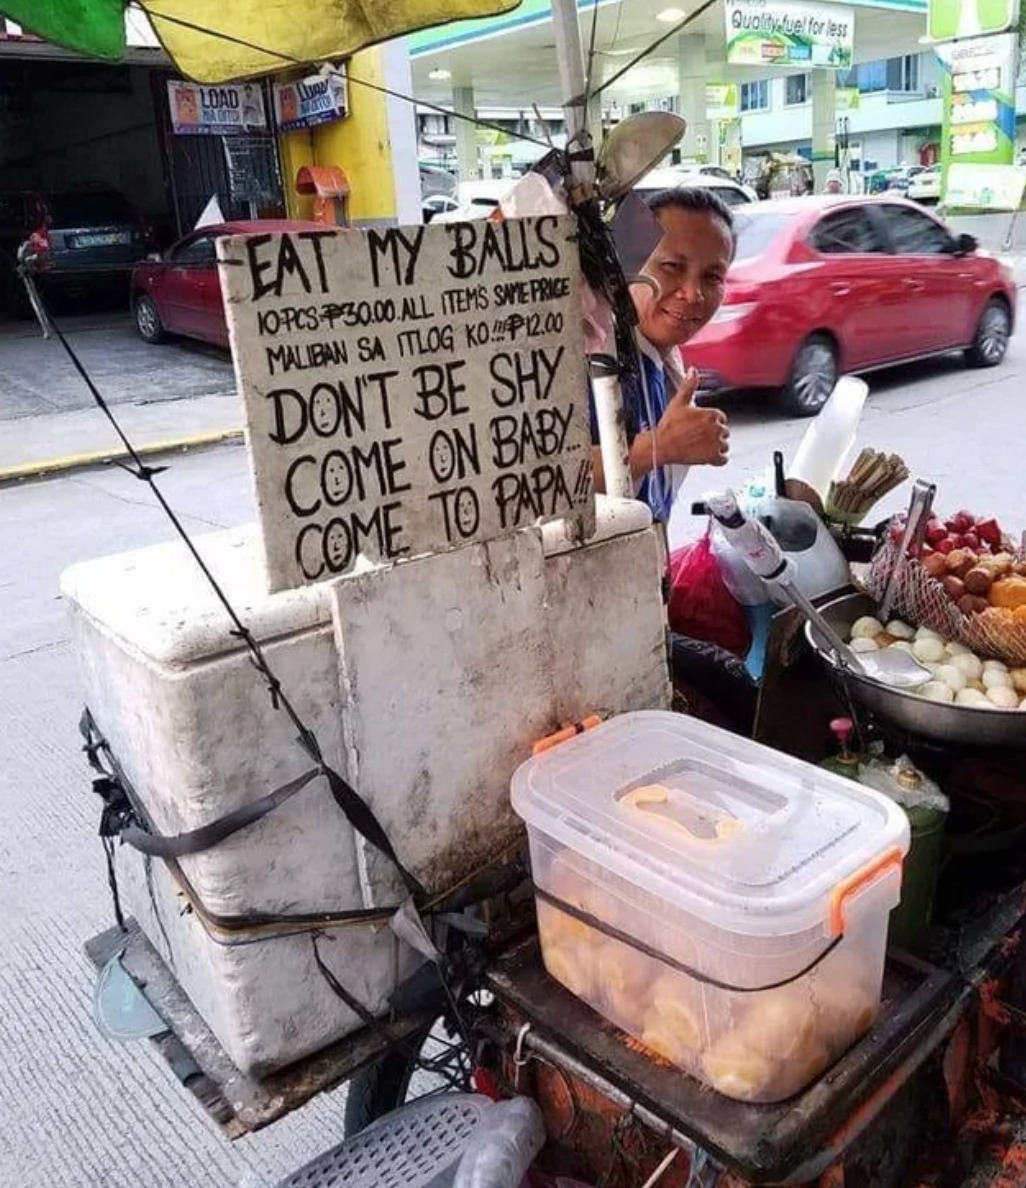 Quality fuel for less
LOAD
NA DITO!
LOAD
NA DITO!
EAT MY BALLS
10-PCS-₱30.00. ALL ITEM'S SAME PRICE
MALIBAN SA ITLOG KO!!! ₱12.00
DON'T BE SHY
COME ON BABY...
COME TO PAPA!!!